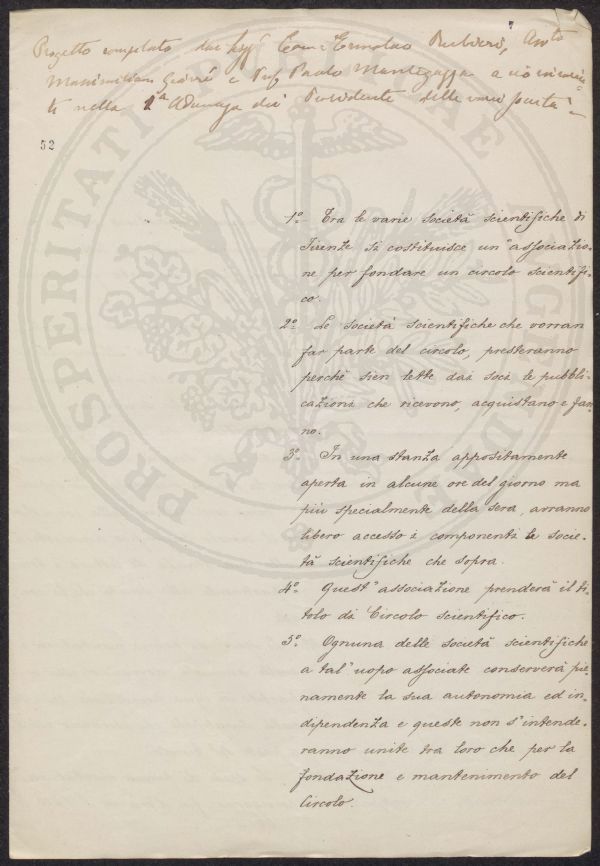 Progetto compilato dai Sigg.ri Com. Ermolao Rubieri, Avto
Massimiliano e Prof Paolo Mantegazza a ciò
ti nella 1a Adunanza dei Presidente delle varie società
52
1º. Tra le varie società scientifiche di
Firenze si costituisce un'associazio-
ne per fondare un circolo scientifi-
co.
2º. Le società scientifiche che vorran
far parte del circolo, presteranno
perchè sien lette dai soci le pubbli-
cazioni che ricevono, acquistano e fan-
no.
3º. In una stanza appositamente
aperta in alcune ore del giorno ma
più specialmente della sera, avranno
libero accesso i componenti le socie-
tà scientifiche che sopra.
4º. Quest'associazione prenderà il ti-
tolo di Circolo scientifico.
5º. Ognuna delle società scientifiche
a tal'uopo associate conserverà pie-
namente la sua autonomia ed in-
dipendenza e queste non s'intende-
ranno unite tra loro che per la
fondazione e mantenimento del
Circolo.
PROSPERITATI PUBLICAE AUGENDAE